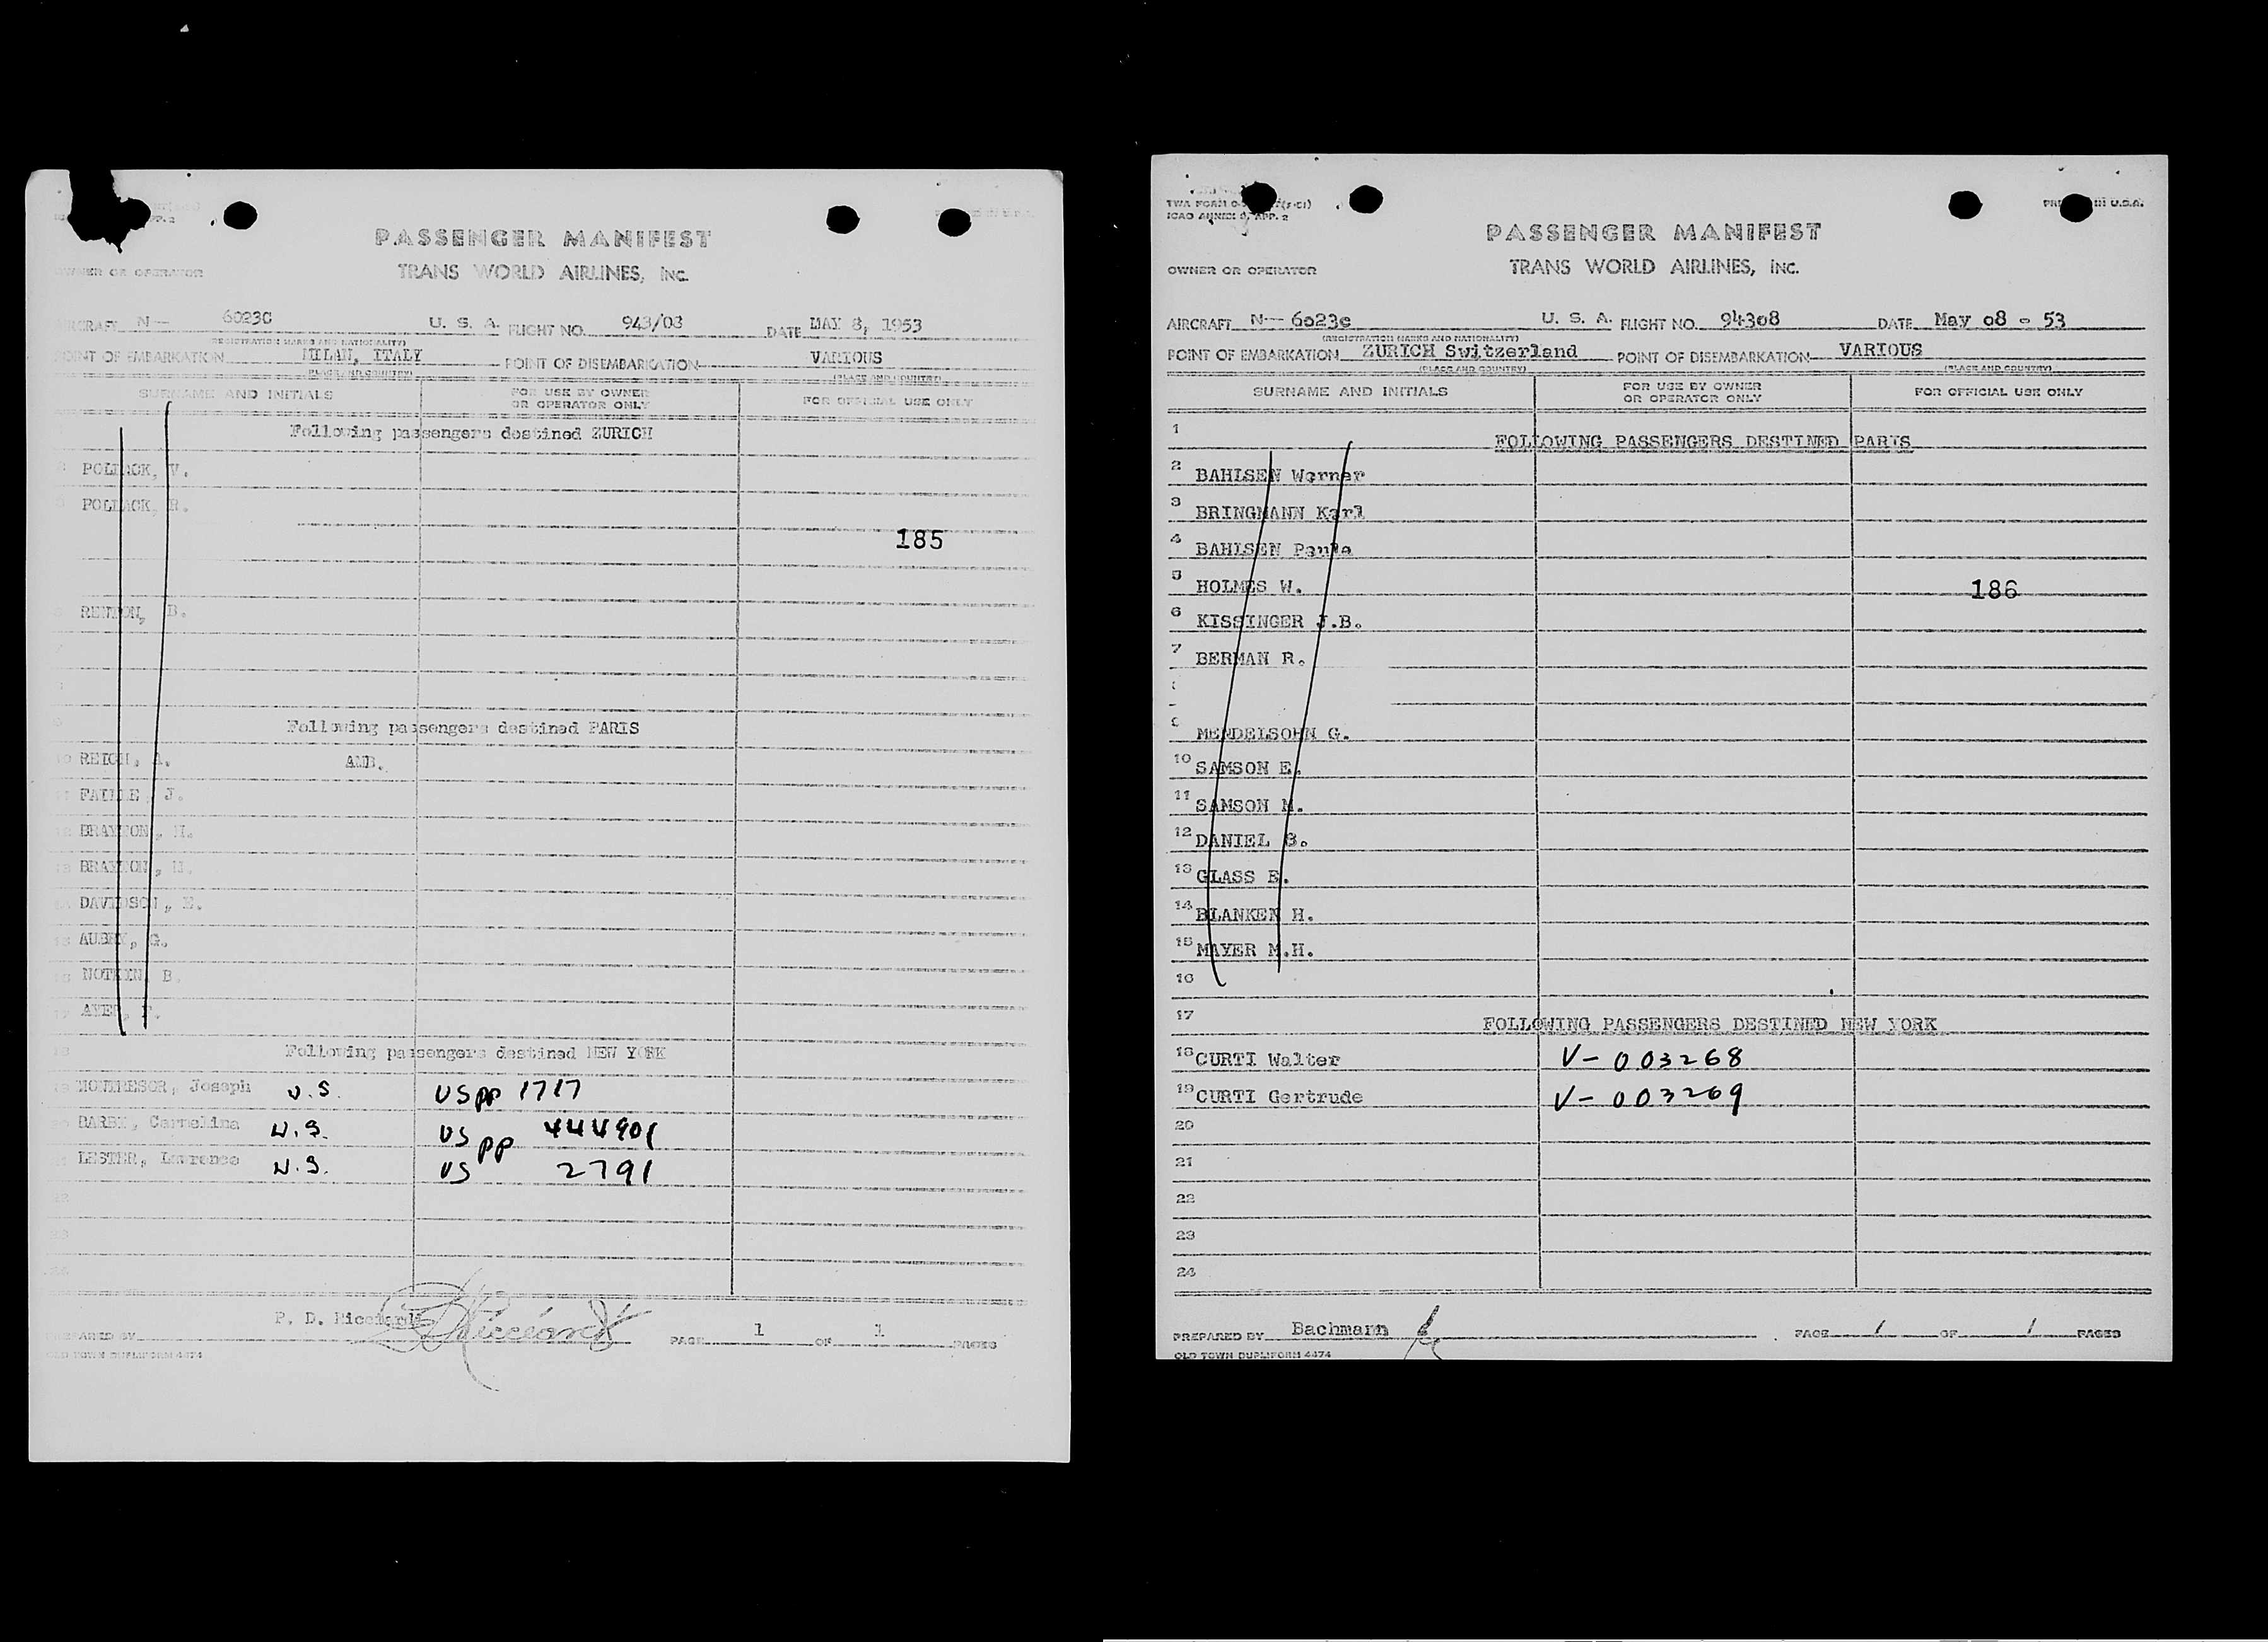 PASSENGER MANIFEST
OWNER OR OPERATOR TRANS WORLD AIRLINES, INC.
AIRCRAFT N— 6023C U. S. A. FLIGHT NO. 943/08 DATE MAY 8, 1953
(REGISTRATION MARKS AND NATIONALITY)
POINT OF EMBARKATION MILAN, ITALY POINT OF DISEMBARKATION VARIOUS
(PLACE AND COUNTRY) (PLACE AND COUNTRY)
SURNAME AND INITIALS FOR USE BY OWNER OR OPERATOR ONLY FOR OFFICIAL USE ONLY
Following passengers destined ZURICH
POLLACK, V.
POLLACK, R.
185
RENTON, B.
Following passengers destined PARIS
10 REICH, A. AMB.
FAILLE, J.
BRAYTON, H.
BRAYTON, H.
DAVIDSON, E.
AUBRY, G.
NOTKIN, B.
Following passengers destined NEW YORK
MONTRESOR, Joseph U.S. US pp 1717
DARBY, Carmelina U.S. US pp 444901
LESTER, Lawrence U.S. US 2791
22
23
24
P. D. Ricciardi
PREPARED BY PAGE 1 OF 1 PAGES
OLD TOWN DUPLIFORM 4474
TWA FORM
ICAO ANNEX 9, APP. 2
PASSENGER MANIFEST
OWNER OR OPERATOR TRANS WORLD AIRLINES, INC.
AIRCRAFT N— 6023c U. S. A. FLIGHT NO. 94308 DATE May 08 - 53
(REGISTRATION MARKS AND NATIONALITY)
POINT OF EMBARKATION ZURICH Switzerland POINT OF DISEMBARKATION VARIOUS
(PLACE AND COUNTRY) (PLACE AND COUNTRY)
SURNAME AND INITIALS FOR USE BY OWNER OR OPERATOR ONLY FOR OFFICIAL USE ONLY
1 FOLLOWING PASSENGERS DESTINED PARIS
2 BAHLSEN Werner
3 BRINGMANN Karl
4 BAHLSEN Paula
5 HOLMES W. 186
6 KISSINGER J.B.
7 BERMAN R.
9 MENDELSOHN G.
10 SAMSON E.
11 SAMSON M.
12 DANIEL S.
13 GLASS E.
14 BLANKEN H.
15 MAYER M.H.
16
17 FOLLOWING PASSENGERS DESTINED NEW YORK
18 CURTI Walter V- 003268
19 CURTI Gertrude V- 003269
20
21
22
23
24
PREPARED BY Bachmann PAGE 1 OF 1 PAGES
OLD TOWN DUPLIFORM 4474